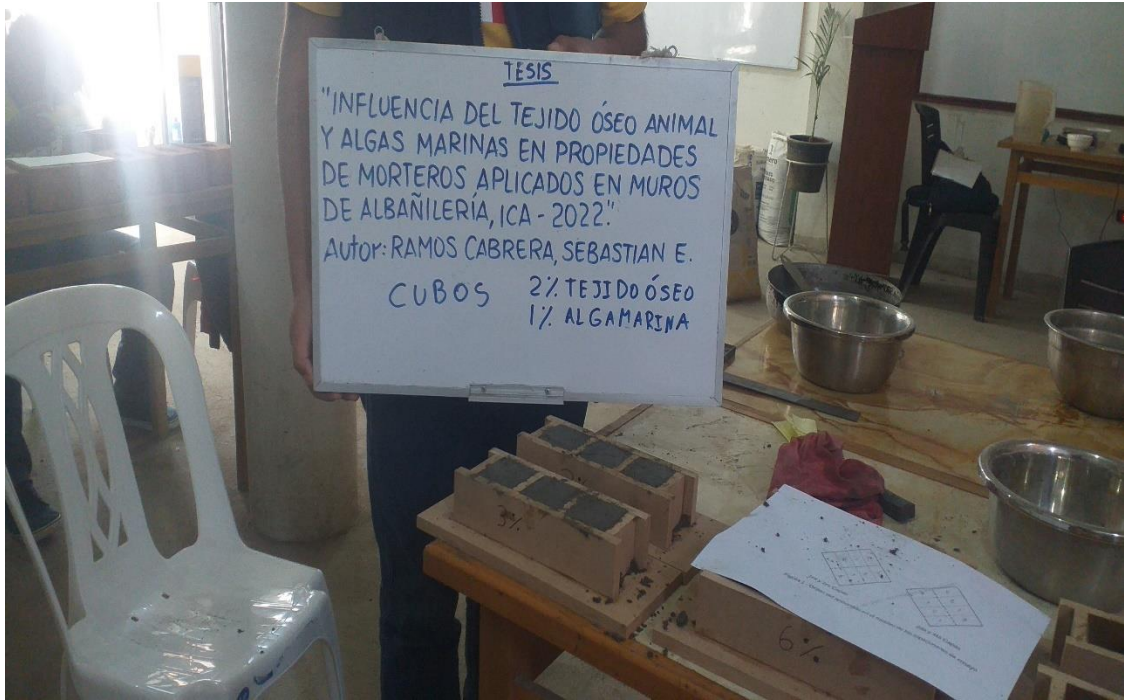 TESIS
"INFLUENCIA DEL TEJIDO ÓSEO ANIMAL
Y ALGAS MARINAS EN PROPIEDADES
DE MORTEROS APLICADOS EN MUROS
DE ALBAÑILERÍA, ICA - 2022."
Autor: RAMOS CABRERA, SEBASTIAN E.
CUBOS 2% TEJIDO ÓSEO
1% ALGAMARINA
3%
6%